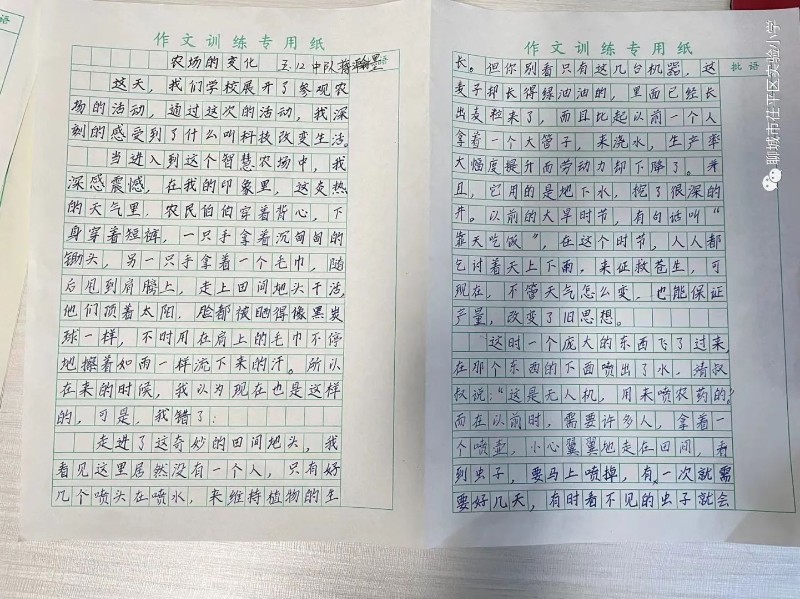 作文训练专用纸
农场的变化 五.12中队 语
这天，我们学校展开了参观农
场的活动，通过这次的活动，我深
刻的感受到了什么叫科技改变生活。
当进入到这个智慧农场中，我
深感震憾，在我的印象里，这炎热
的天气里，农民伯伯穿着背心，下
身穿着短裤，一只手拿着沉甸甸的
锄头，另一只手拿着一个毛巾，随
后甩到肩膀上，走上田间地头干活，
他们顶着太阳，脸都被晒得像黑炭
球一样，不时用在肩上的毛巾不停
地擦着如雨一样流下来的汗。所以
在来的时候，我以为现在也是这样
的，可是，我错了：
走进了这奇妙的田间地头，我
看见这里居然没有一个人，只有好
几个喷头在喷水，来维持植物的生
作文训练专用纸
批语
长。但你别看只有这几台机器，这
麦子却长得绿油油的，里面已经长
出麦粒来了，而且比起以前一个人
拿着一个大管子，来浇水，生产率
大幅度提升而劳动力却下降了。并
且，它用的是地下水，挖了很深的
井。以前的大旱时节，有句话叫“
靠天吃饭”，在这个时节，人人都
乞讨着天上下雨，来拯救苍生，可
现在，不管天气怎么变，也能保证
产量，改变了旧思想。
这时一个庞大的东西飞了过来，
在那个东西的下面喷出了水，清汉
叔说：“这是无人机，用来喷农药的”
而在以前时，需要许多人，拿着一
个喷壶，小心翼翼地走在田间，看
到虫子，要马上喷掉，有一次就需
要好几天，有时看不见的虫子就会
聊城市茌平区实验小学
语